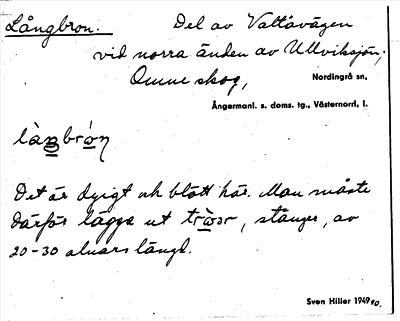 Långbron. Del av Valtåvägen
vid norra änden av Ullviksjön;
Omne skog, Nordingrå sn,
Ångermanl. s. doms. tg., Västernorrl. l.
Det är dyigt och blött här. Man måste
därför lägga ut , stänger, av
20-30 alnars längd.
Sven Hiller 1949